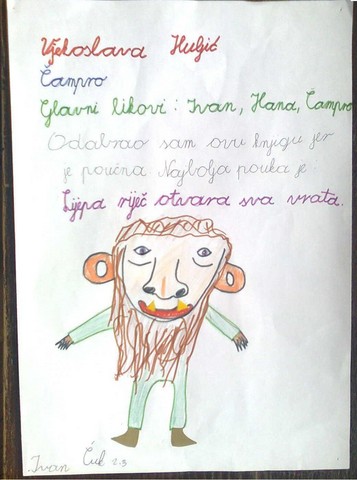 Vjekoslava Huljić
Čampro
Glavni likovi: Ivan, Hana, Čampro
Odabrao sam ovu knjigu jer
je poučna Najbolja pouka je:
Lijepa riječ otvara sva vrata.
Ivan Čuk 2.3